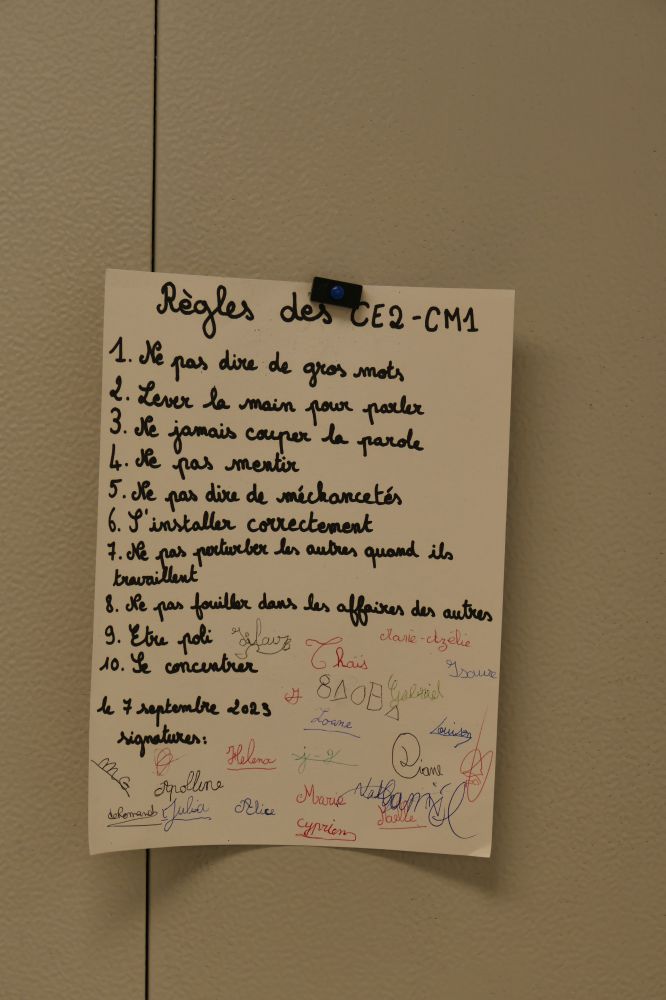 Règles des CE2-CM1
1. Ne pas dire de gros mots
2. Lever la main pour parler
3. Ne jamais couper la parole
4. Ne pas mentir
5. Ne pas dire de méchancetés
6. S'installer correctement
7. Ne pas perturber les autres quand ils
travaillent
8. Ne pas fouiller dans les affaires des autres
9. Etre poli
Marie-Azélie
10. Se concentrer
Thaïs
Isaure
Gabriel
le 7 septembre 2023
Loane
Louison
signatures:
Helena
j-g
Diane
Apolline
Marie
Camil
Julia
Alice
Jaelle
Cyprien